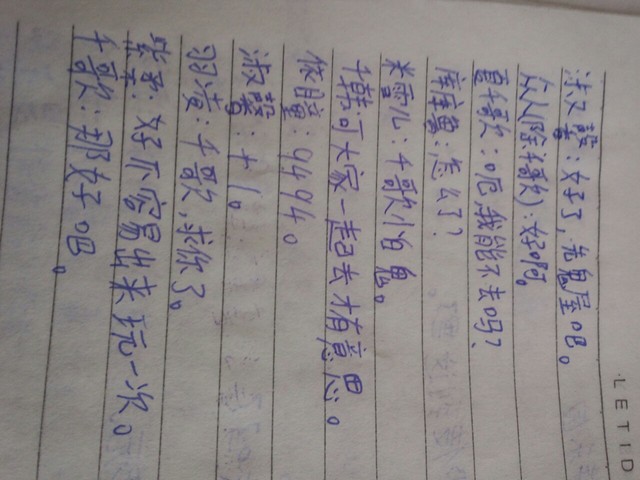 淑馨：好了，先鬼屋吧。
众人(除千歌)：好啊。
夏千歌：呃，我能不去吗？
库库鲁：怎么了？
米雪儿：千歌小怕鬼。
千韩：可大家一起去才有意思。
依瞳：4494。
淑馨：十1。
羽凌：千歌，求你了。
紫王：好不容易出来玩一次。
千歌：那好吧。
LETID